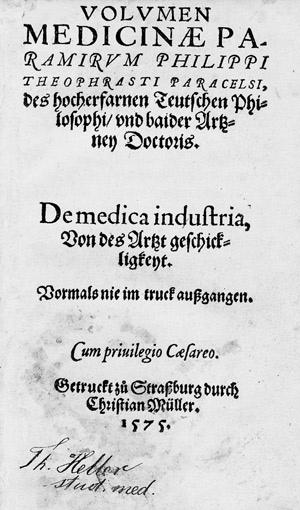 VOLVMEN
MEDICINÆ PA-
RAMIRVM PHILIPPI
THEOPHRASTI PARACELSI,
des hocherfarnen Teutschen Phi-
losophi/ vnd baider Artz-
ney Doctoris.
De medica industria,
Von des Artzt geschick-
ligkeyt.
Vormals nie im truck außgangen.
Cum priuilegio Cæsareo.
Getruckt zů Straßburg durch
Christian Müller.
1575.
Th. Heller
stud. med.